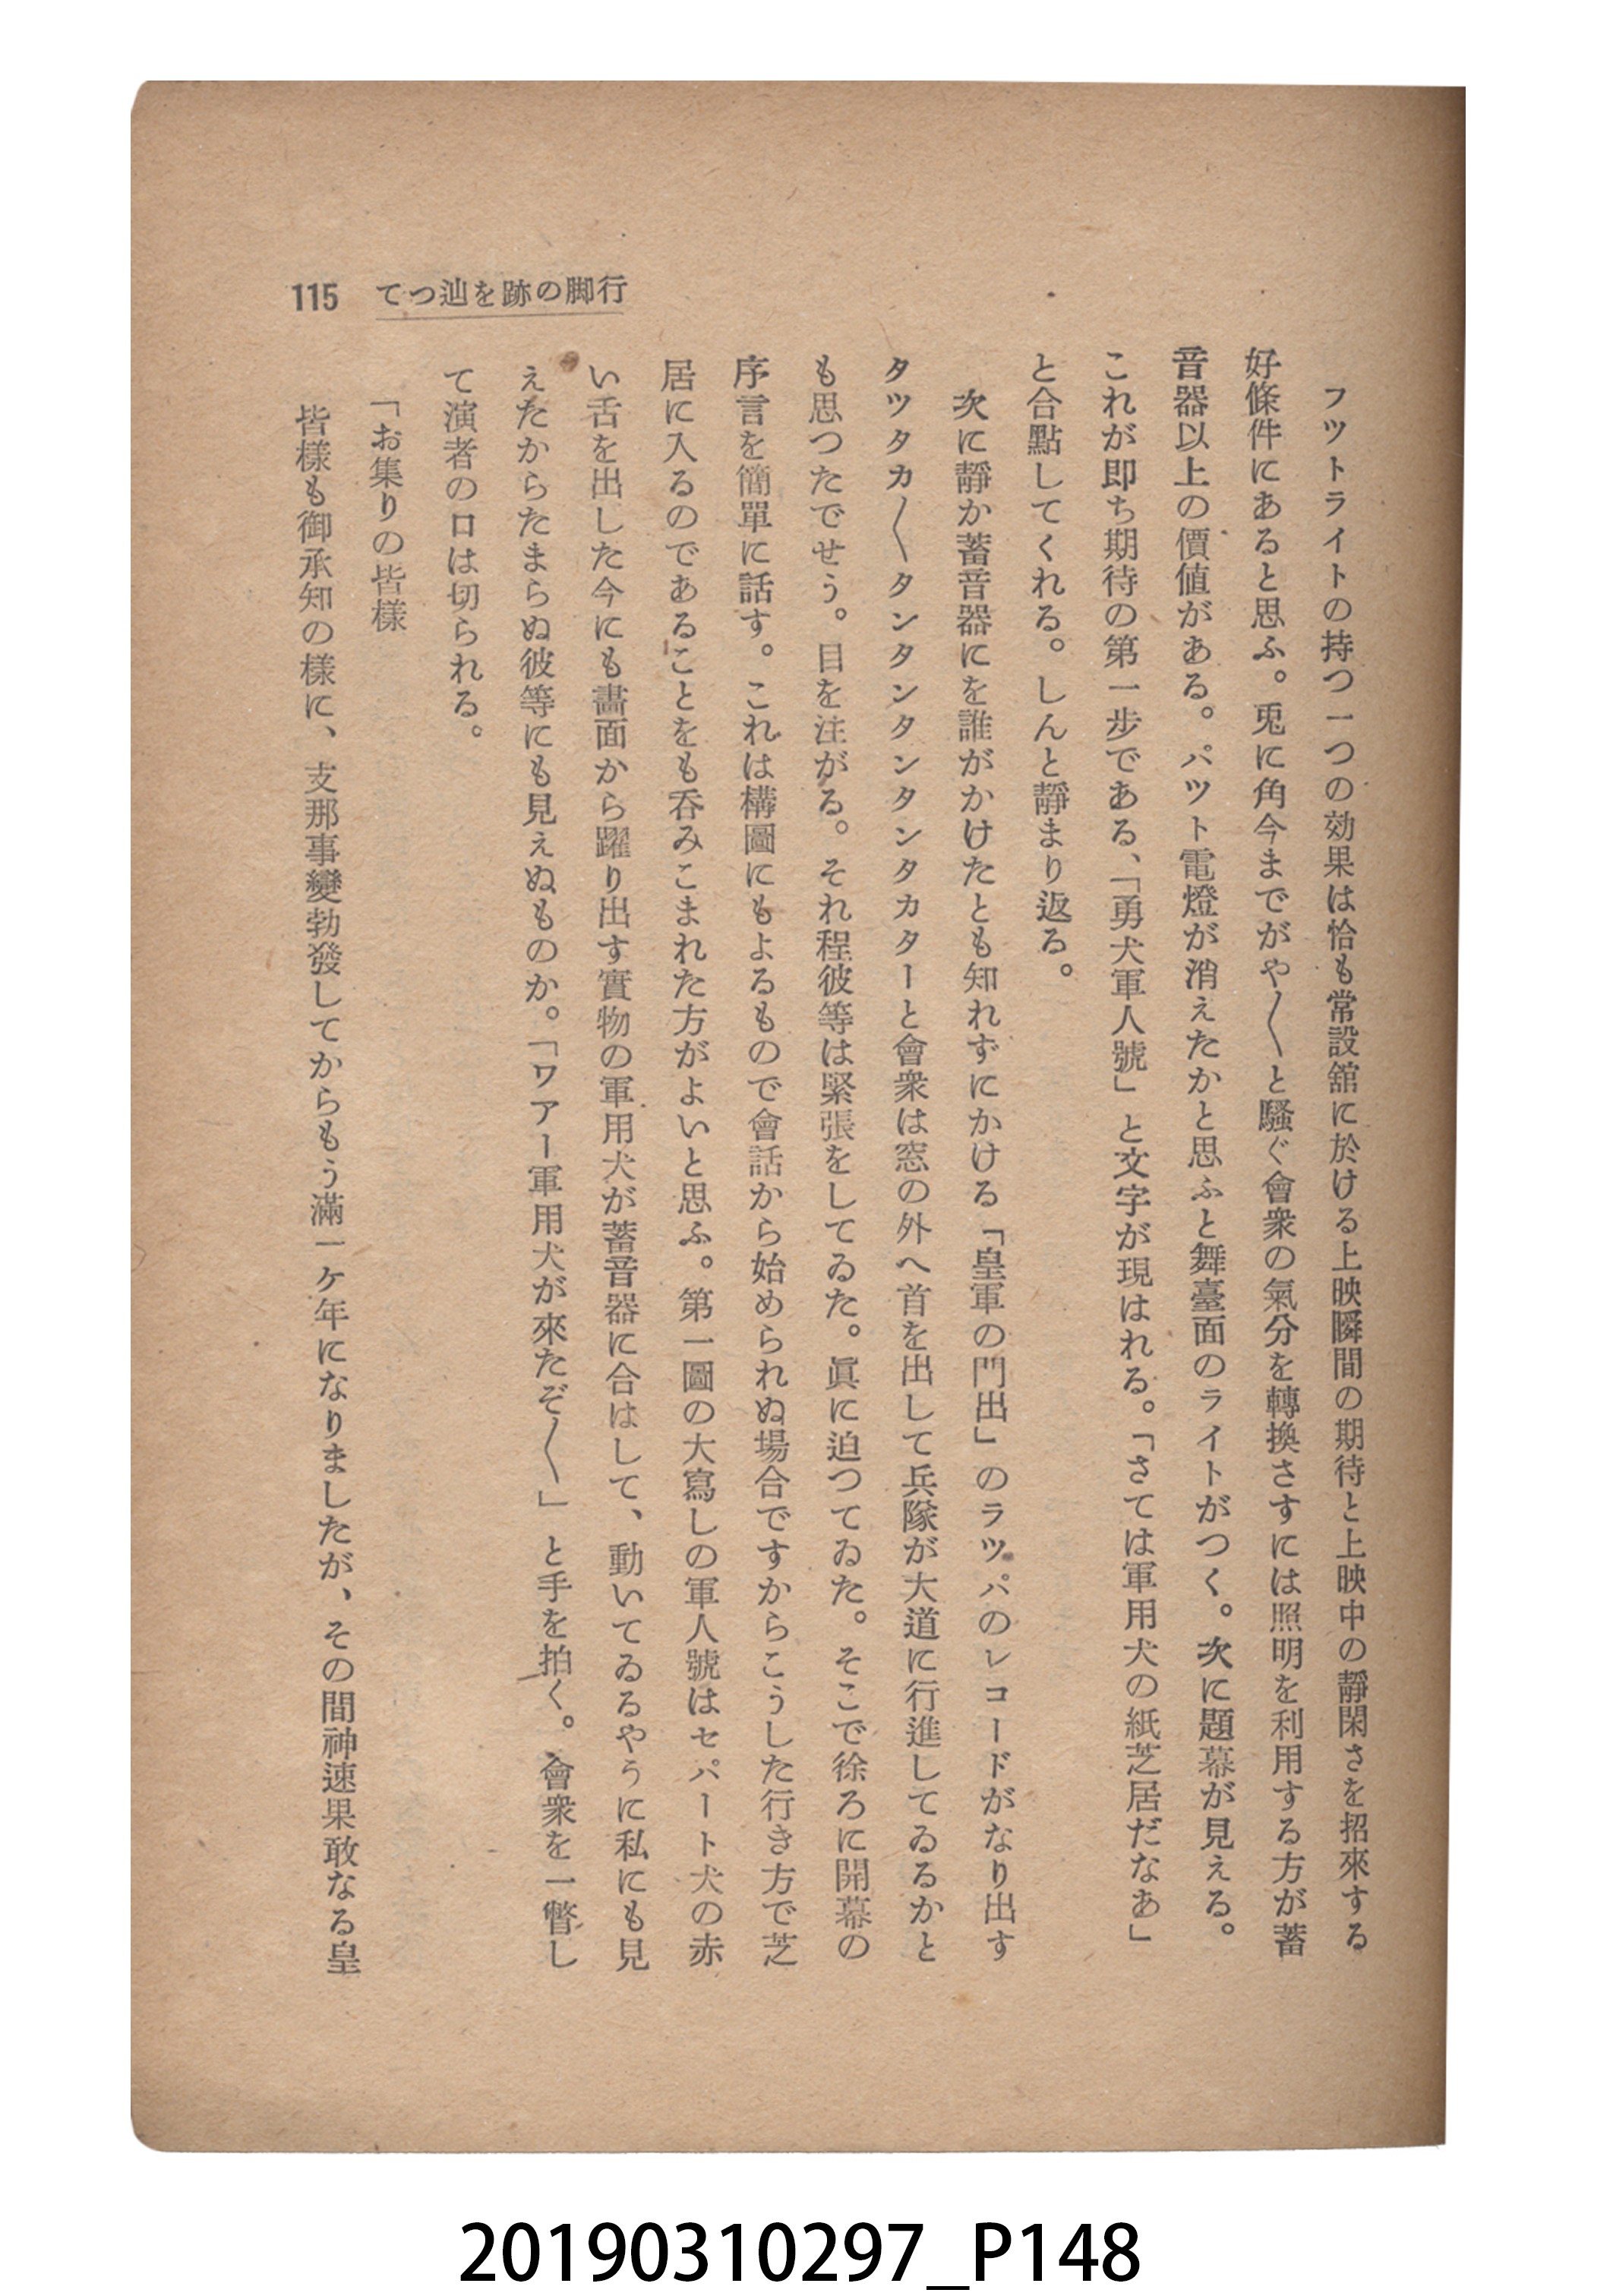 115 てつ辿を跡の脚行
フツトライトの持つ一つの効果は恰も常設舘に於ける上映瞬間の期待と上映中の靜閑さを招來する
好條件にあると思ふ。兎に角今までがや〱と騷ぐ會衆の氣分を轉換さすには照明を利用する方が蓄
音器以上の價値がある。パツト電燈が消えたかと思ふと舞臺面のライトがつく。次に題幕が見える。
これが即ち期待の第一步である、「勇犬軍人號」と文字が現はれる。「さては軍用犬の紙芝居だなあ」
と合點してくれる。しんと靜まり返る。
次に靜か蓄音器にを誰がかけたとも知れずにかける「皇軍の門出」のラツパのレコードがなり出す
タツタカ〱タンタンタンタンタカターと會衆は窓の外へ首を出して兵隊が大道に行進してゐるかと
も思つたでせう。目を注がる。それ程彼等は緊張をしてゐた。眞に迫つてゐた。そこで徐ろに開幕の
序言を簡單に話す。これは構圖にもよるもので會話から始められぬ場合ですからこうした行き方で芝
居に入るのであることをも呑みこまれた方がよいと思ふ。第一圖の大寫しの軍人號はセパート犬の赤
い舌を出した今にも畵面から躍り出す實物の軍用犬が蓄音器に合はして、動いてゐるやうに私にも見
えたからたまらぬ彼等にも見えぬものか。「ワアー軍用犬が來たぞ〱」と手を拍く。會衆を一瞥し
て演者の口は切られる。
「お集りの皆樣
皆樣も御承知の樣に、支那事變勃發してからもう滿一ケ年になりましたが、その間神速果敢なる皇
20190310297_P148